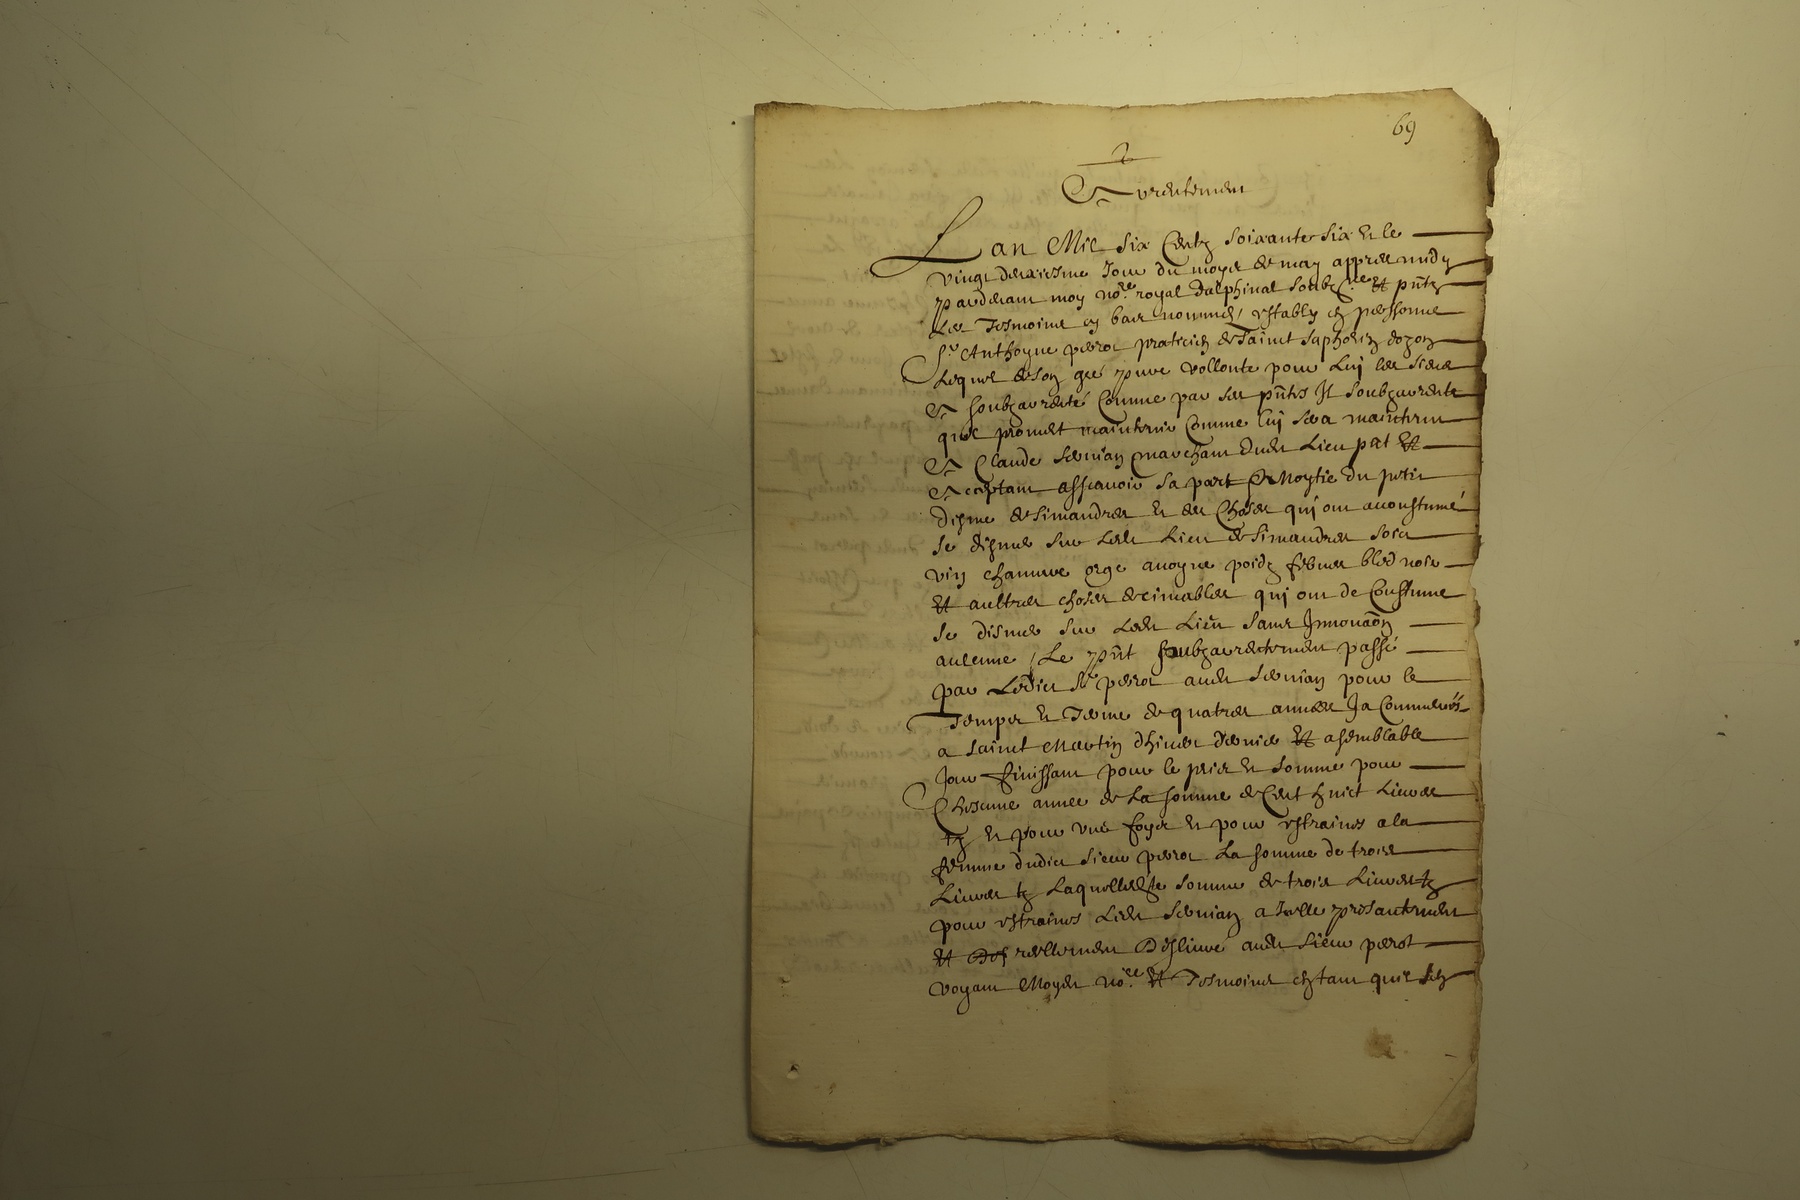 69
2
Arrentement
Lan Mil Six Centz Soixante Six et le
vingt deuxiesme Jour du moys de may appres midy
pardevant moy no.re royal dalphinal soubz.né et pntz
Les Tesmoins en bas nommés, estably en personne
S.r Anthoyne perrot praticien de Sainct Saphorin dozon
Lequel de son gré pure vollonte pour Luy les siens
A soubzarrenté Comme par ses pntes Il soubzarrente
quil promet maintenir Comme luy sera maintenu
A Claude marchant dudit Lieu pnt et
Acceptant assavoir sa part et Moytie du petit
disme de Simandres et des Choses qui ont accoustumé
se dismer sur Ledit Lieu de Simandres soict
vin chanvre orge avoyne poidz febves bled noir
et aultres choses decimables qui ont de Coustume
se dismer sur Ledit Lieu sans Innovaon
aulcune / Le pnt soubzarrentement passé
par Ledict S.r perrot audit pour le
Temps et Terme de quatres années Ja Commencés
a Sainct Martin dhiver dernier et a semblable
Jour finissant pour le prix et somme pour
Chescune annee de La somme de Cent huict Livres
tz et pour une foys et pour estraines a la
femme dudict Sieur perrot La somme de trois
Livres tz Laquelle somme de trois Livres tz
pour estraines Ledit a Icelle presantement
et reellement deslivré audit Sieur perrot
voyant Moydit no.re et Tesmoins entant quil sen